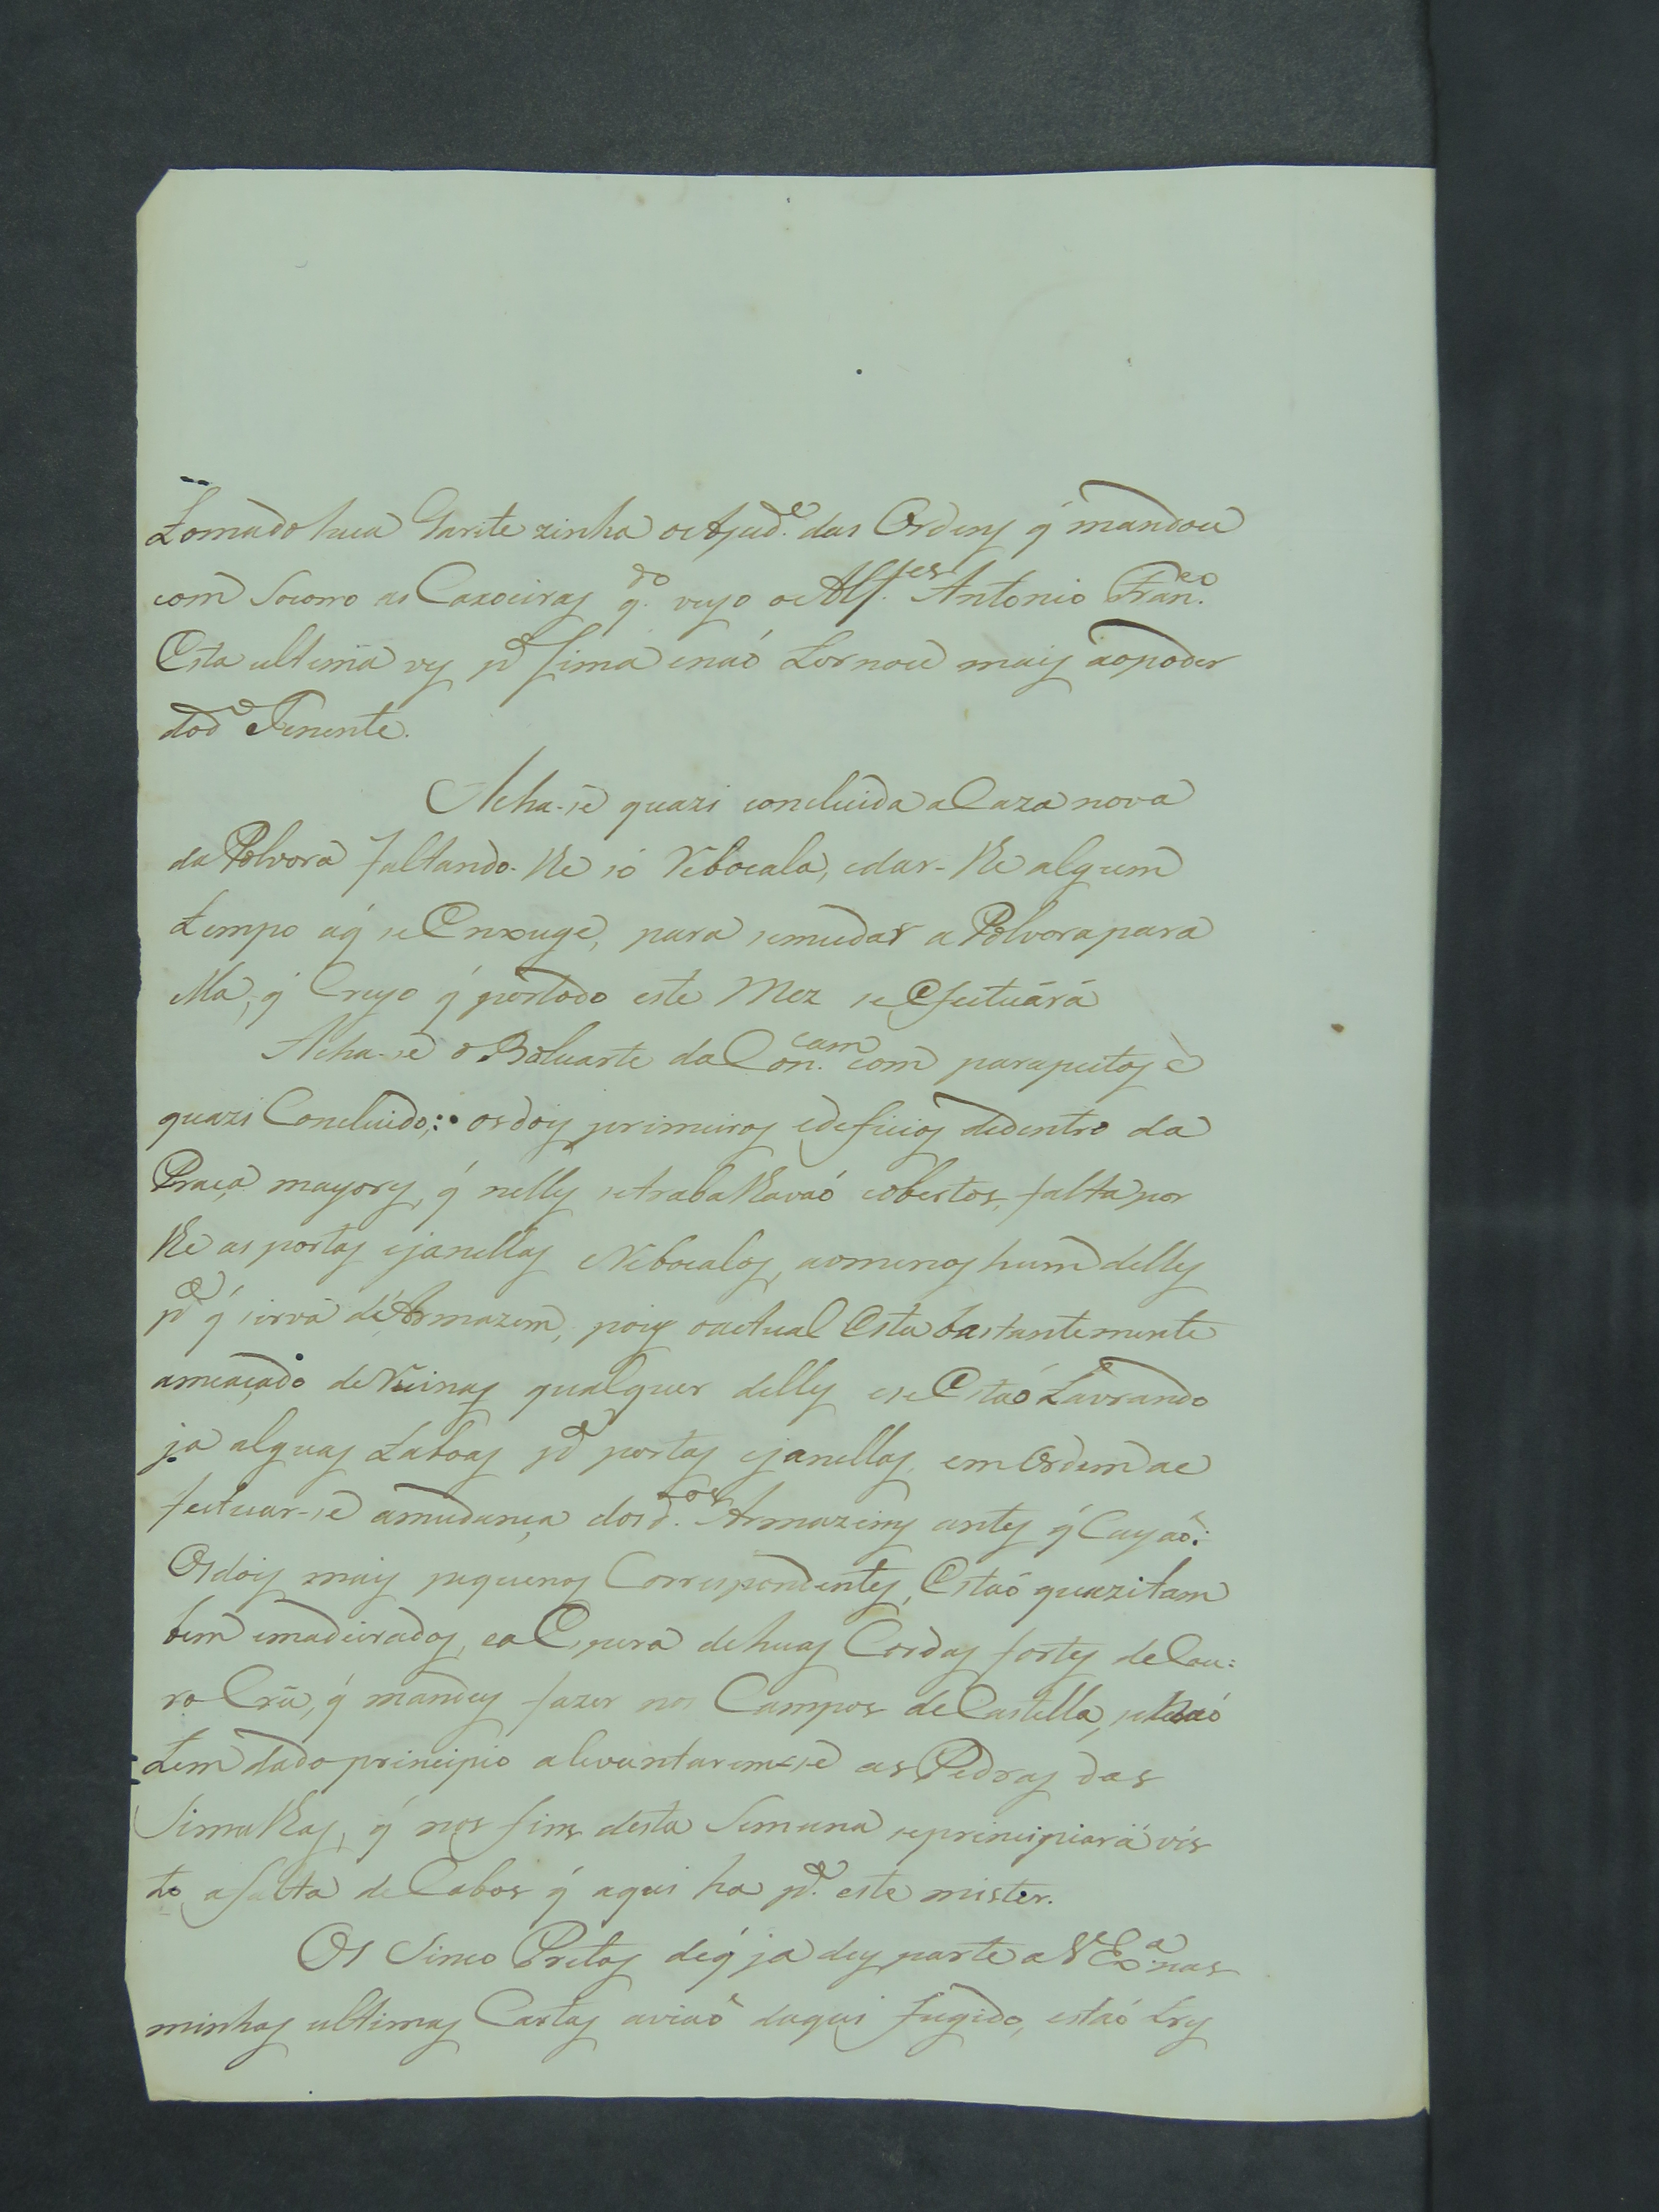 tomado hua Garite zinha o Ajud.e das Ordens q' mandou
com Socorro as Caxoeiras q.do veyo o Alf.es Antonio Fran.co
Esta ultima ves p.a sima enaó tornou mais aopoder
dod.o Tenente.
Acha-se quazi concluida a Caza nova
da Polvora faltando-lhe só Rebocala, edar-lhe algum
tempo aq' se Enxuge, para semudar a Polvora para
ella, q' Creyo q' portodo este Mez se Efeituárá
Acha-se o Baluarte da Con.cam com parapeitos è
quazi Concluido; os dois primeiros edeficios dedentro da
Praça mayores, q' nelles setrabalhavaó cobertos, falta por
lhe as portas ejanellas eRebocalos, aomenos hum delles
p.a q' sirva de Armazem, pois oactual Esta bastantemente
ameaçado de Ruinas qualquer delles ese Estaó Lavrando
ja alguas taboas p.a portas ejanellas, em Ordem ae
feituar-se amudança dosd.os Armazens antes q' Cayaó:
Os dois mais pequenos Correspondentes, Estaó quazi tam
bem emadeirados, ea Espera dehuas Cordas fortes de Cou:
ro Crú, q' mandey fazer nos Campos de Castella, senaó
tem dado principio alevantarem-se as Pedras das
Simalhas, q' nos fins desta Semana seprincipiará vis
to afalta de Cabos q' aqui ha p.a este mister.
Os Sinco Pretos deq' ja dey parte a V Ex.a nas
minhas ultimas Cartas aviaó daqui fugido, estaó tres